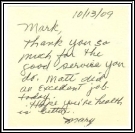 10/13/09
Mark,
Thank you so
much for the
good service you
do. Matt did
an excellent job
today.
Hope you're health
is better.
Mary